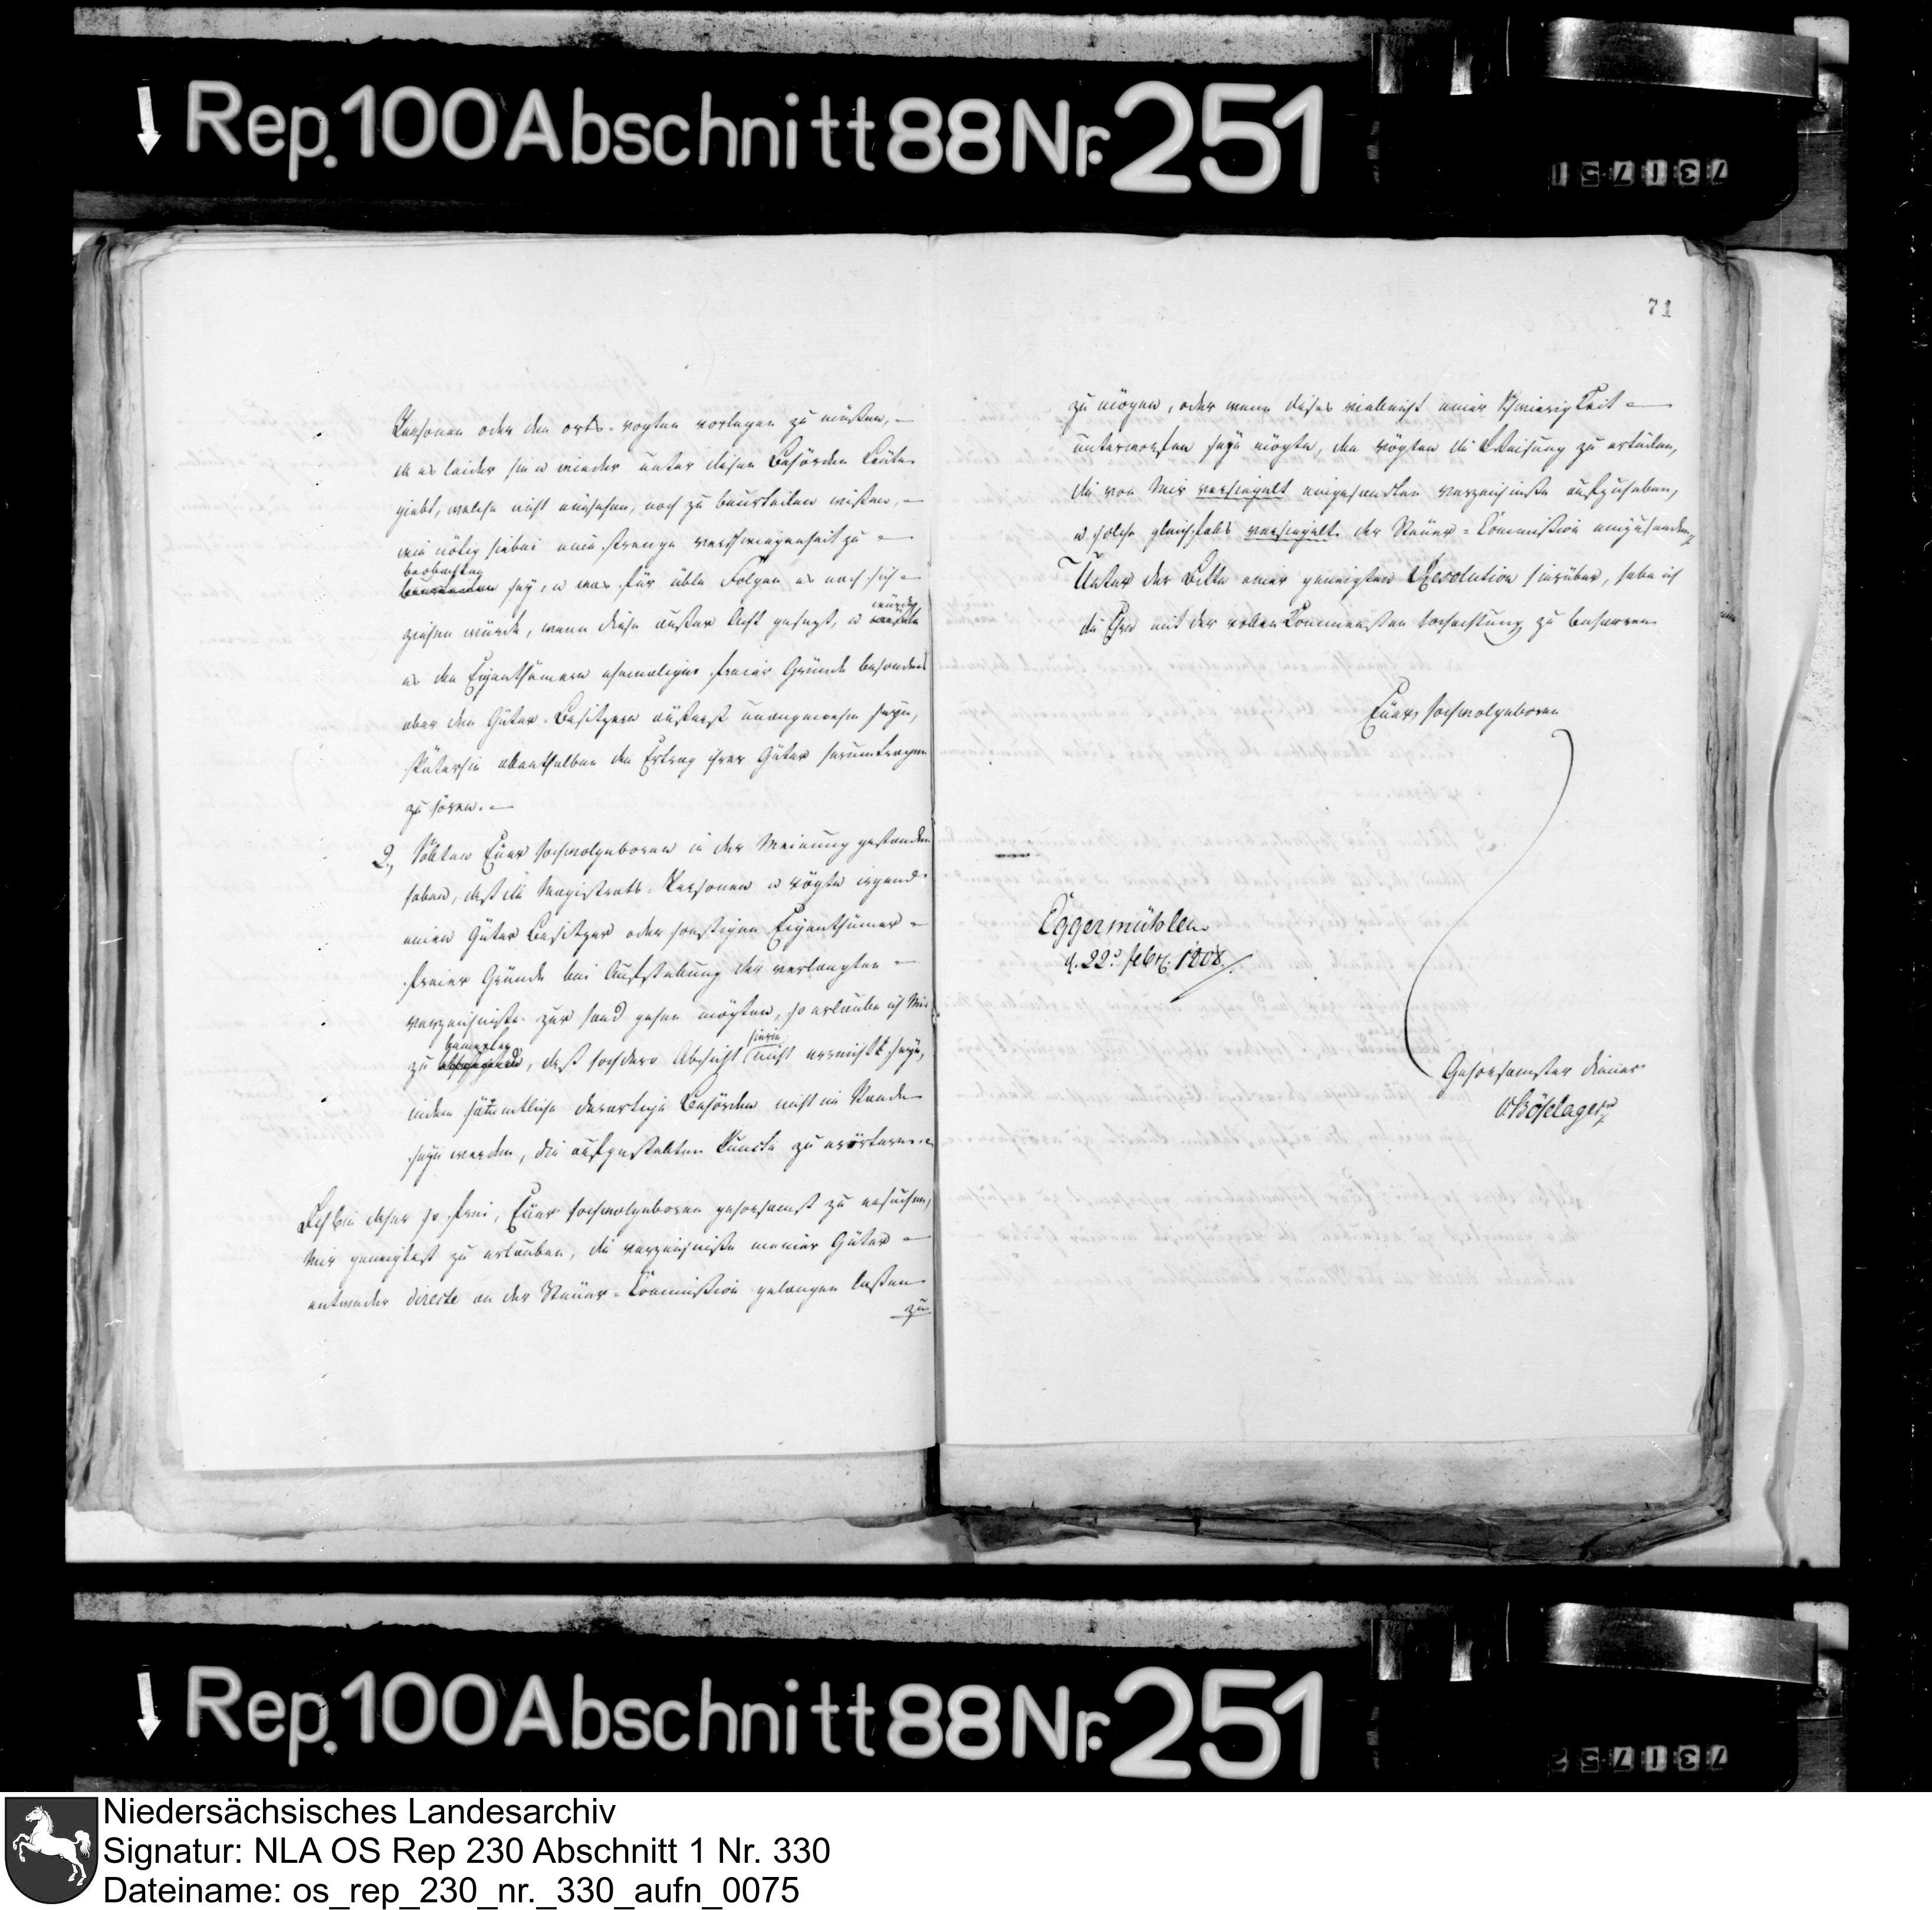 Rep. 100 Abschnitt 88 Nr. 251
731751
Personen oder den orts-vogten vorlegen zu müßen, –
da es leider hin u wieder unter diesen Behörden Leüte
giebt, welche nicht einsehen, noch zu beurteilen wißen, –
wie nötig hiebei eine strenge verschwiegenheit zu –
beobachten
sey, u was für üble Folgen es nach sich –
ziehen würde, wenn diese außer Acht gesezt, u
würde
es den Eigenthümern ehemaliger freier Gründe besonders
aber den Güter-Besitzern aüßerst unangenehm seyn,
späterhin allenthalben den Ertrag ihrer Güter herumtragen
zu hören. –
2., Solten Eüer hochwolgeboren in der Meinung gestanden
haben, daß die Magistrats-Personen u vögte irgend
einen Güter Besitzer oder sonstigen Eigenthümer –
freier Gründe bei Aufstellung der verlangten –
verzeichniße zur hand gehen mögten, so erlaube ich Mir
zu bemerken, daß hochdero Absicht hierin nicht erreicht seyn,
indem sämtliche derartige Behörden nicht im Stande
seyn werden, die aufgestelten Puncte zu erörtern. –
Ich bin daher so frei, Eüer hochwolgeboren gehorsamst zu ersuchen,
Mir geneigtest zu erlauben, die verzeichniße meiner Güter –
entweder directe an der Steüer-Commißion gelangen laßen
zu
71
zu mögen, oder wenn dieses vieleicht einer Schwierigkeit –
unterworfen seyn mögte, den vögten die Weisung zu erteilen,
die von Mir versiegelt eingesandten verzeichniße aufzuheben,
u solche gleichfals versiegelt der Steüer-Commißion einzusenden,
Unter der Bitte einer geneigten Resolution hierüber, habe ich
die Ehre mit der vollenkommensten hochachtung zu beharren
Eüer hochwolgeboren
Eggermühlen
d. 22ᵗ febr. 1808.
Gehorsamster diener
vBöselager
Rep. 100 Abschnitt 88 Nr. 251
731752
Niedersächsisches Landesarchiv
Signatur: NLA OS Rep 230 Abschnitt 1 Nr. 330
Dateiname: os_rep_230_nr._330_aufn_0075